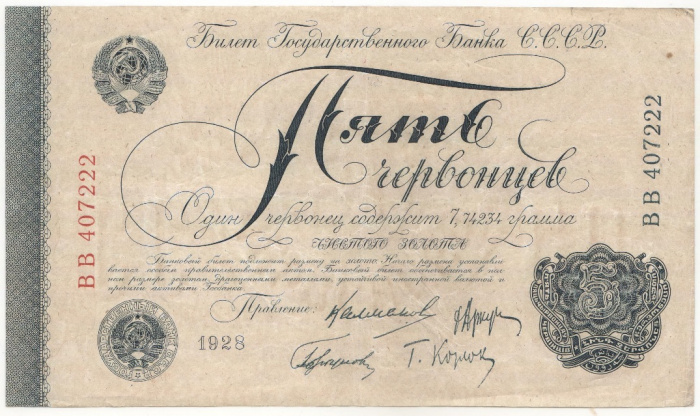 Билет Государственного Банка С.С.С.Р.
Пять
червонцев
Один червонец содержит 7,74234 грамма
чистого золота
Банковый билет подлежит размену на золото. Начало размена устанавли-
вается особым правительственным актом. Банковый билет обеспечивается в пол-
ном размере золотом, драгоценными металлами, устойчивой иностранной валютой и
прочими активами Госбанка.
Правление:
1928
ВВ 407222
ВВ 407222
5